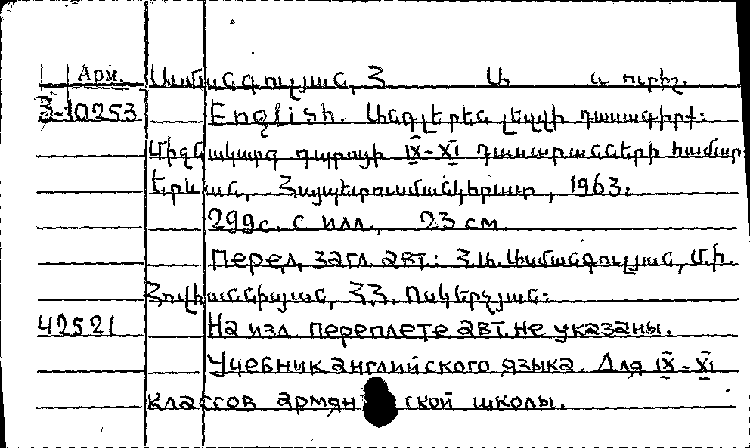 Арм. Ամանգուլյան, Հ. Ա. և ուրիշ.
3-10253 English. Անգլերեն լեզվի դասագիրք:
Միջնակարգ դպրոցի IX-XI դասարանների համար
Երևան, Հայպետուսմանկհրատ, 1963.
299с. с илл., 23 см
Перед загл. авт.: Հ.Ա. Ամանգուլյան, Մ.Ի.
Հովհաննիսյան, Հ.Հ. Ոսկերչյան:
42521 На изл. переплете авт. не указаны.
Учебник английского языка. Для IX-XI
классов армян ской школы.